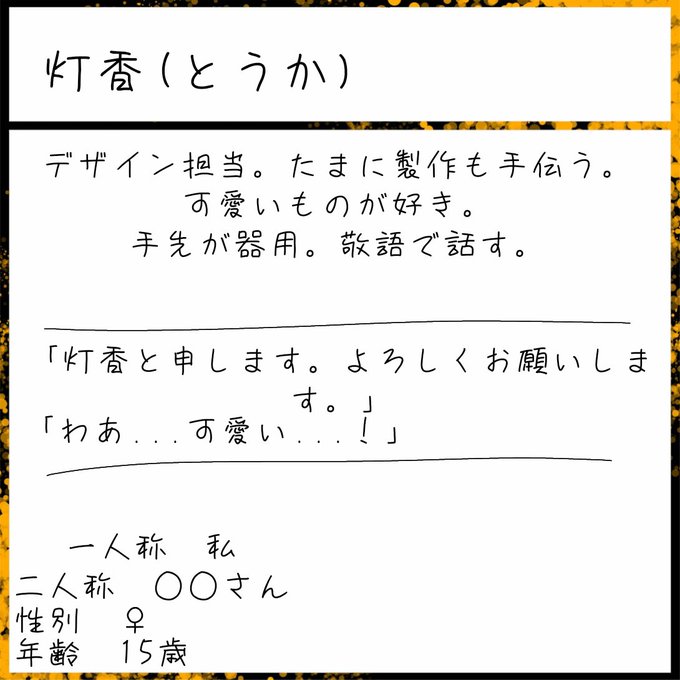 灯香(とうか)
デザイン担当。たまに製作も手伝う。
可愛いものが好き。
手先が器用。敬語で話す。
「灯香と申します。よろしくお願いしま
す。」
「わあ...可愛い...!」
一人称 私
二人称 〇〇さん
性別 ♀
年齢 15歳